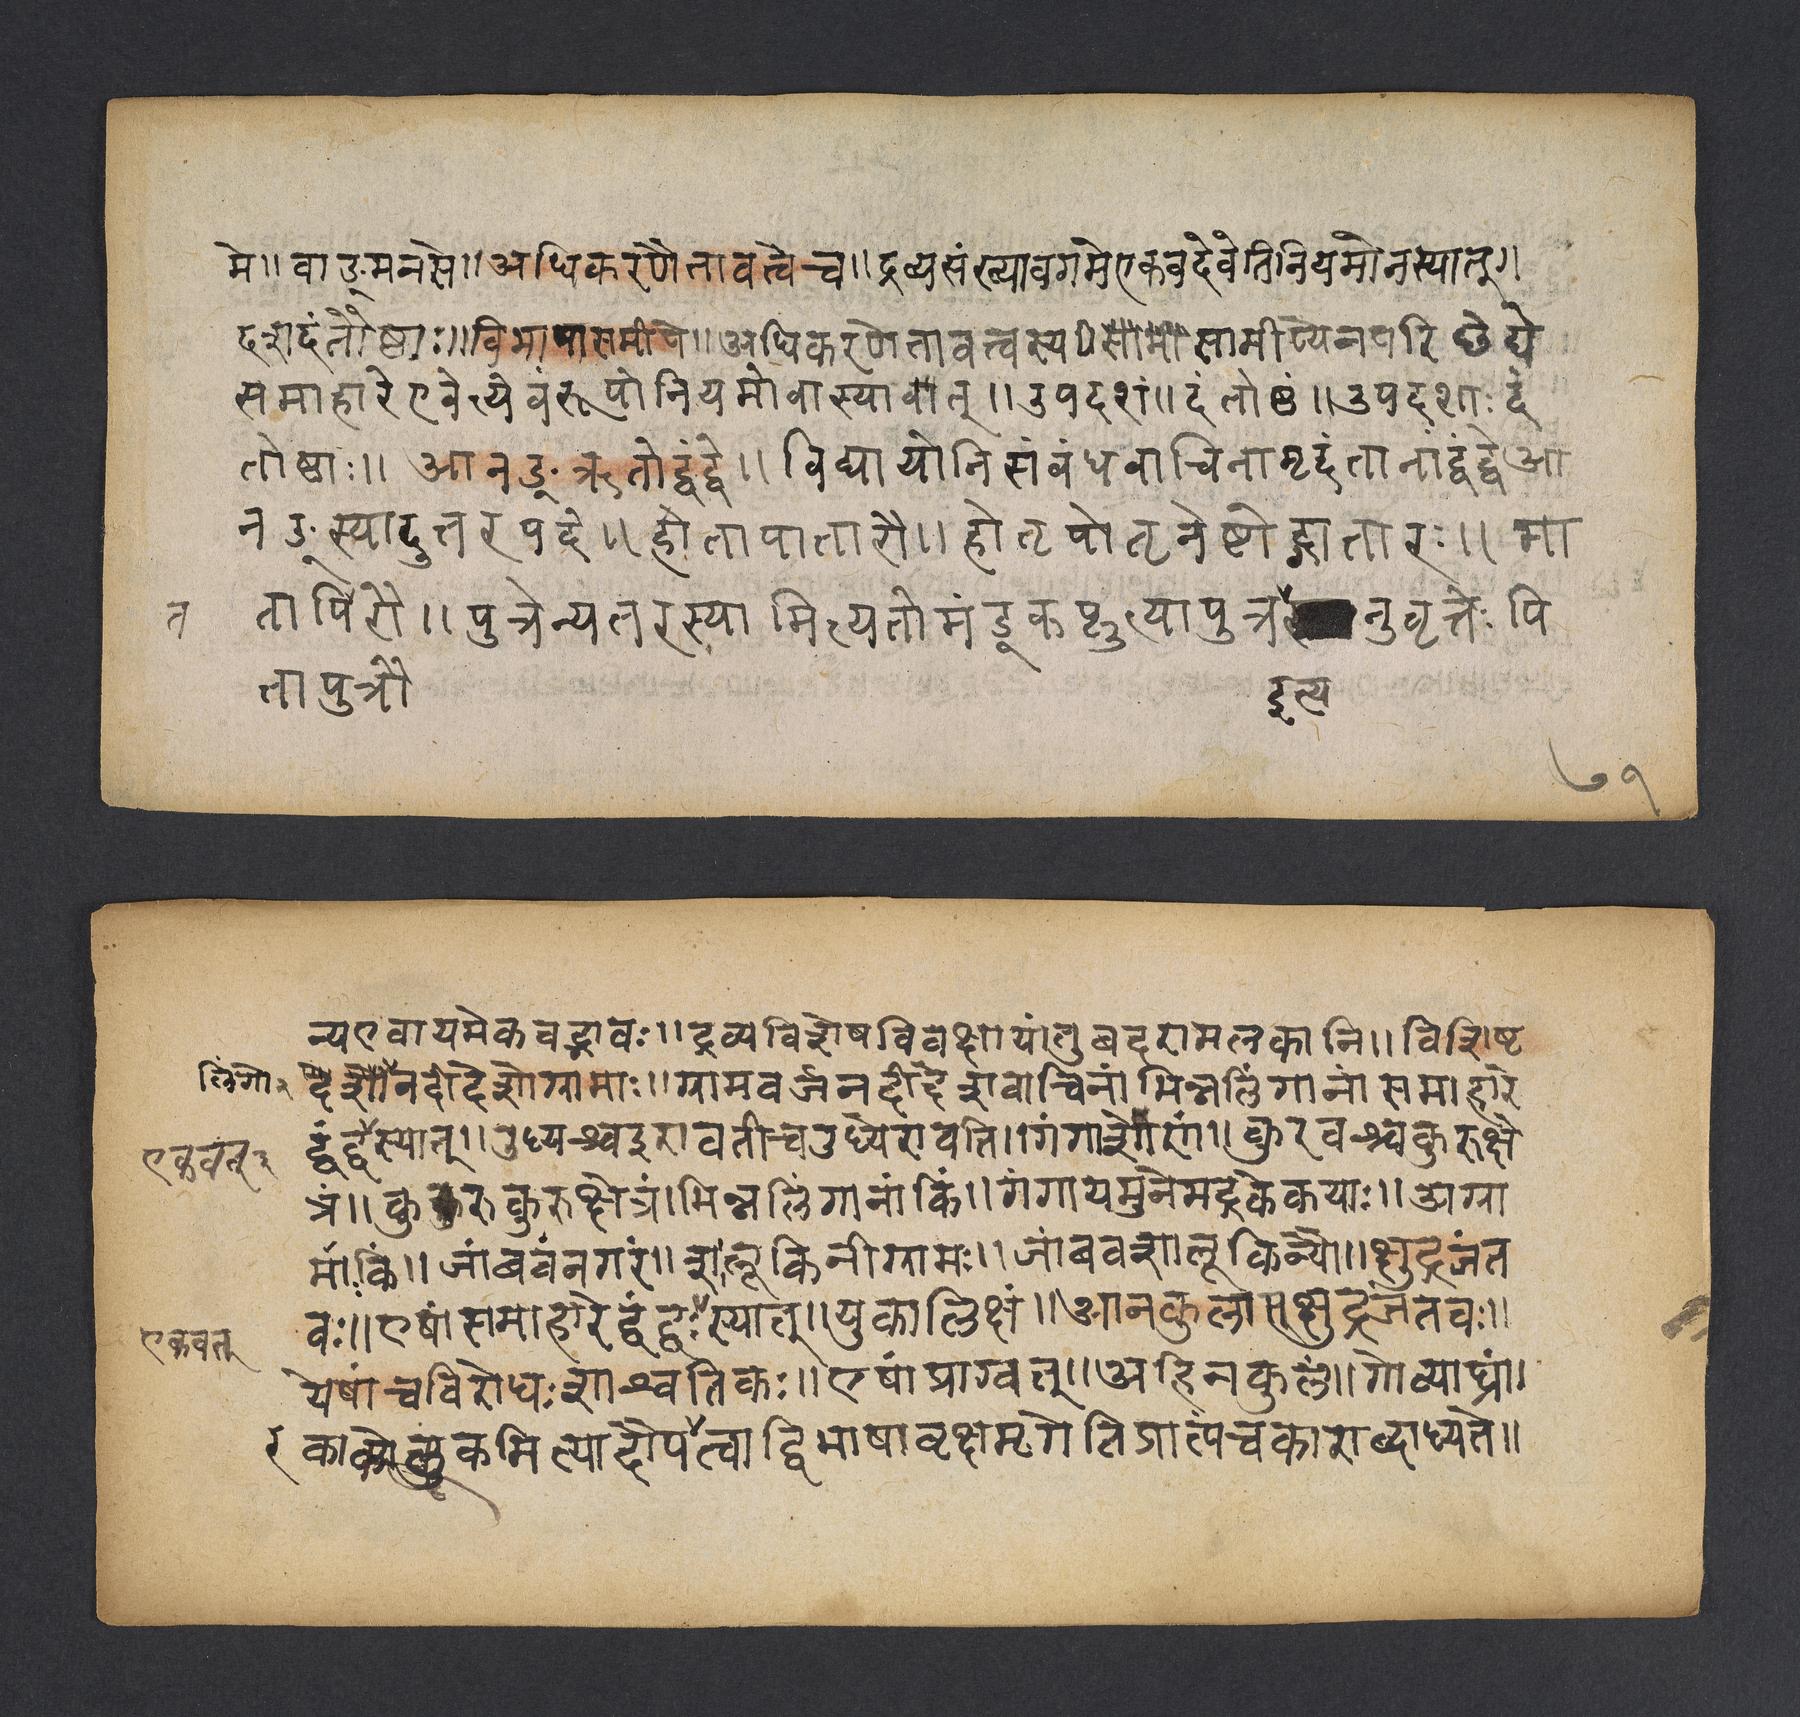 मे॥ वाङ्मनसे॥ अधिकरणैतावत्वेच॥ द्रव्यसंख्यावगमेएकवदेवेतिनियमोनस्यात्॥
दशदंतौष्ठाः॥ विभाषासमीपे॥ अधिकरणेतावत्त्वस्य सामीप्येनपरिछेद्ये
समाहारेएवेत्येवंरूपोनियमोवास्यावात्॥ उपदशं॥ दंतोष्ठं॥ उपदशाः दं
तोष्ठाः॥ आनङ्ऋतोद्वंद्वे॥ विद्यायोनिसंबंधवाचिनामृदंतानांद्वंद्वेआ
नङ्स्यादुत्तरपदे॥ होतापातारौ॥ होतृपोतृनेष्टोद्गातारः॥ मा
त तापिरौ॥ पुत्रेन्यतरस्यामित्यतोमंडूकप्लुत्यापुत्र नुवृत्तेः पि
तापुत्रौ
इत्य
७१
न्यएवायमेकवद्भावः॥ द्रव्यविशेषविवक्षायांतुबदरामलकानि॥ विशिष्ट
लिंगो२ देशोनदीदेशोग्रामाः॥ ग्रामवर्जनदीदेशवाचिनांभिन्नलिंगानांसमाहारे
एकवत्२ द्वंद्वस्यात्॥ उध्यश्चइरावतीचउध्येरावति॥ गंगाशोणं॥ कुरवश्चकुरुक्षे
त्रं॥ कुरुकुरुक्षेत्रं। भिन्नलिंगानांकिं॥ गंगायमुनेमद्रकेकयाः॥ अग्रा
माःकिं॥ जांबवंनगरं॥ शालूकिनीग्रामः॥ जांबवशालूकिन्यौ॥ क्षुद्रजंत
एकवत् वः॥ एषांसमाहारेद्वंद्वःस्यात्॥ युकालिक्षं॥ आनकुलासक्षुद्रजंतवः॥
येषांचविरोधःशाश्वतिकः॥ एषांप्राग्वत्॥ अहिनकुलं॥ गोव्याघ्रं।
र काकोलूकमित्यादौपत्वाद्विभाषावृक्षमृगेतिप्राप्तंचकाराद्बाध्यते॥